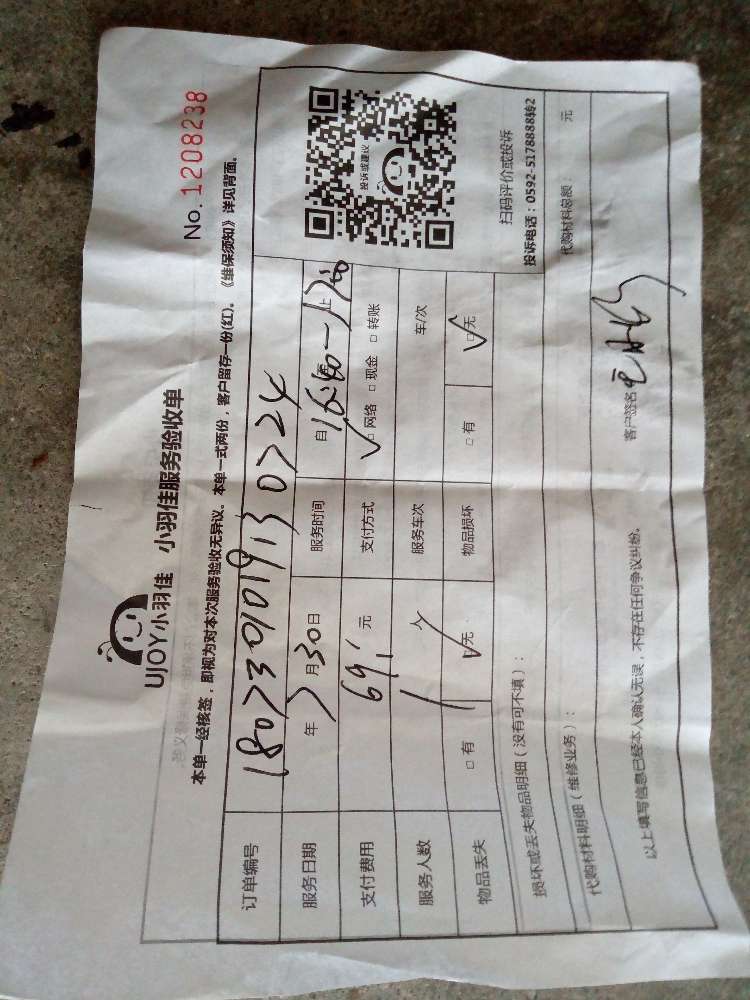 UJOY小羽佳 小羽佳服务验收单
No.1208238
本单一经核签，即视为对本次服务验收无异议。本单一式两份，客户留存一份(红)。《维保须知》详见背面。
订单编号 1807301019130724
服务日期 年 7月30日 服务时间 自 16:40一17:00 止
支付费用 69 元 支付方式 ☑网络 □现金 □转账
服务人数 1 人 服务车次 车/次
物品丢失 □有 ☑无 物品损坏 □有 ☑无
投诉或建议
扫码评价或投诉
投诉电话：0592-5178888转2
损坏或丢失物品明细（没有可不填）：
代购材料明细（维修业务）： 代购材料总额： 元
以上填写信息已经本人确认无误，不存在任何争议纠纷。 客户签名